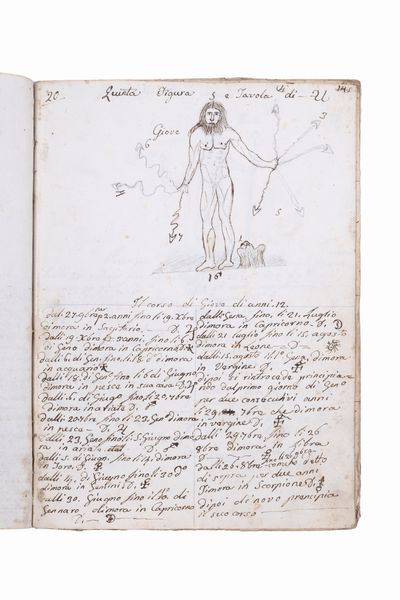 20 Quinta Figura 5 e Tavola di U
Giove
6
3
4
5
7
16
Il corso di Giove di anni 12.
dal 27. 9bre per 2 anni fino li 19. Xbre
dimora in Sagitario. D.
dalli 19 Xbre per 2. anni, fino li 6
di Geno dimora in Capricorno D.
dalli 6. di Gen. fino li 18. do dimora
in acquario
dalli 18. di Gen. fino li 6 di Giugno
dimora in pesce in sua casa D.
dalli 6. di Giugo fino li 20. 7bre
dimora in ariete D.
dalli 20 7bre fino li 23. Geno dimora
in pesce. D.
dalli 23. Geno fino li 5. Giugno dimo
ra in ariete D.
dalli 5. di Giugn. fino li 14. dimora
in Toro. D.
dalli 14. di Giugno fino li 30 do
dimora in Gemini. D.
dalli 30. Giugno fino il Po. di
Gennaro, dimora in Capricorno
D.
dalli Gen. fino, li 21. Luglio
dimora in Capricorno. D.
dalli 21 Luglio fino li 15. agosto
dimora in Leone. D.
dalli 15. agosto il Po Gen. dimora
in Vergine D.
dipoi si retrocede principia
ndo dal primo giorno di Geno
per due consecutivi anni
li 29. 7bre che dimora
in vergine D.
dalli 29. 7bre, fino li 26
8bre dimora in Libra
D.
dalli 26. 8bre
di sopra per due anni
dimora in Scorpione D.
dipoi di novo prencipia
il suo corso